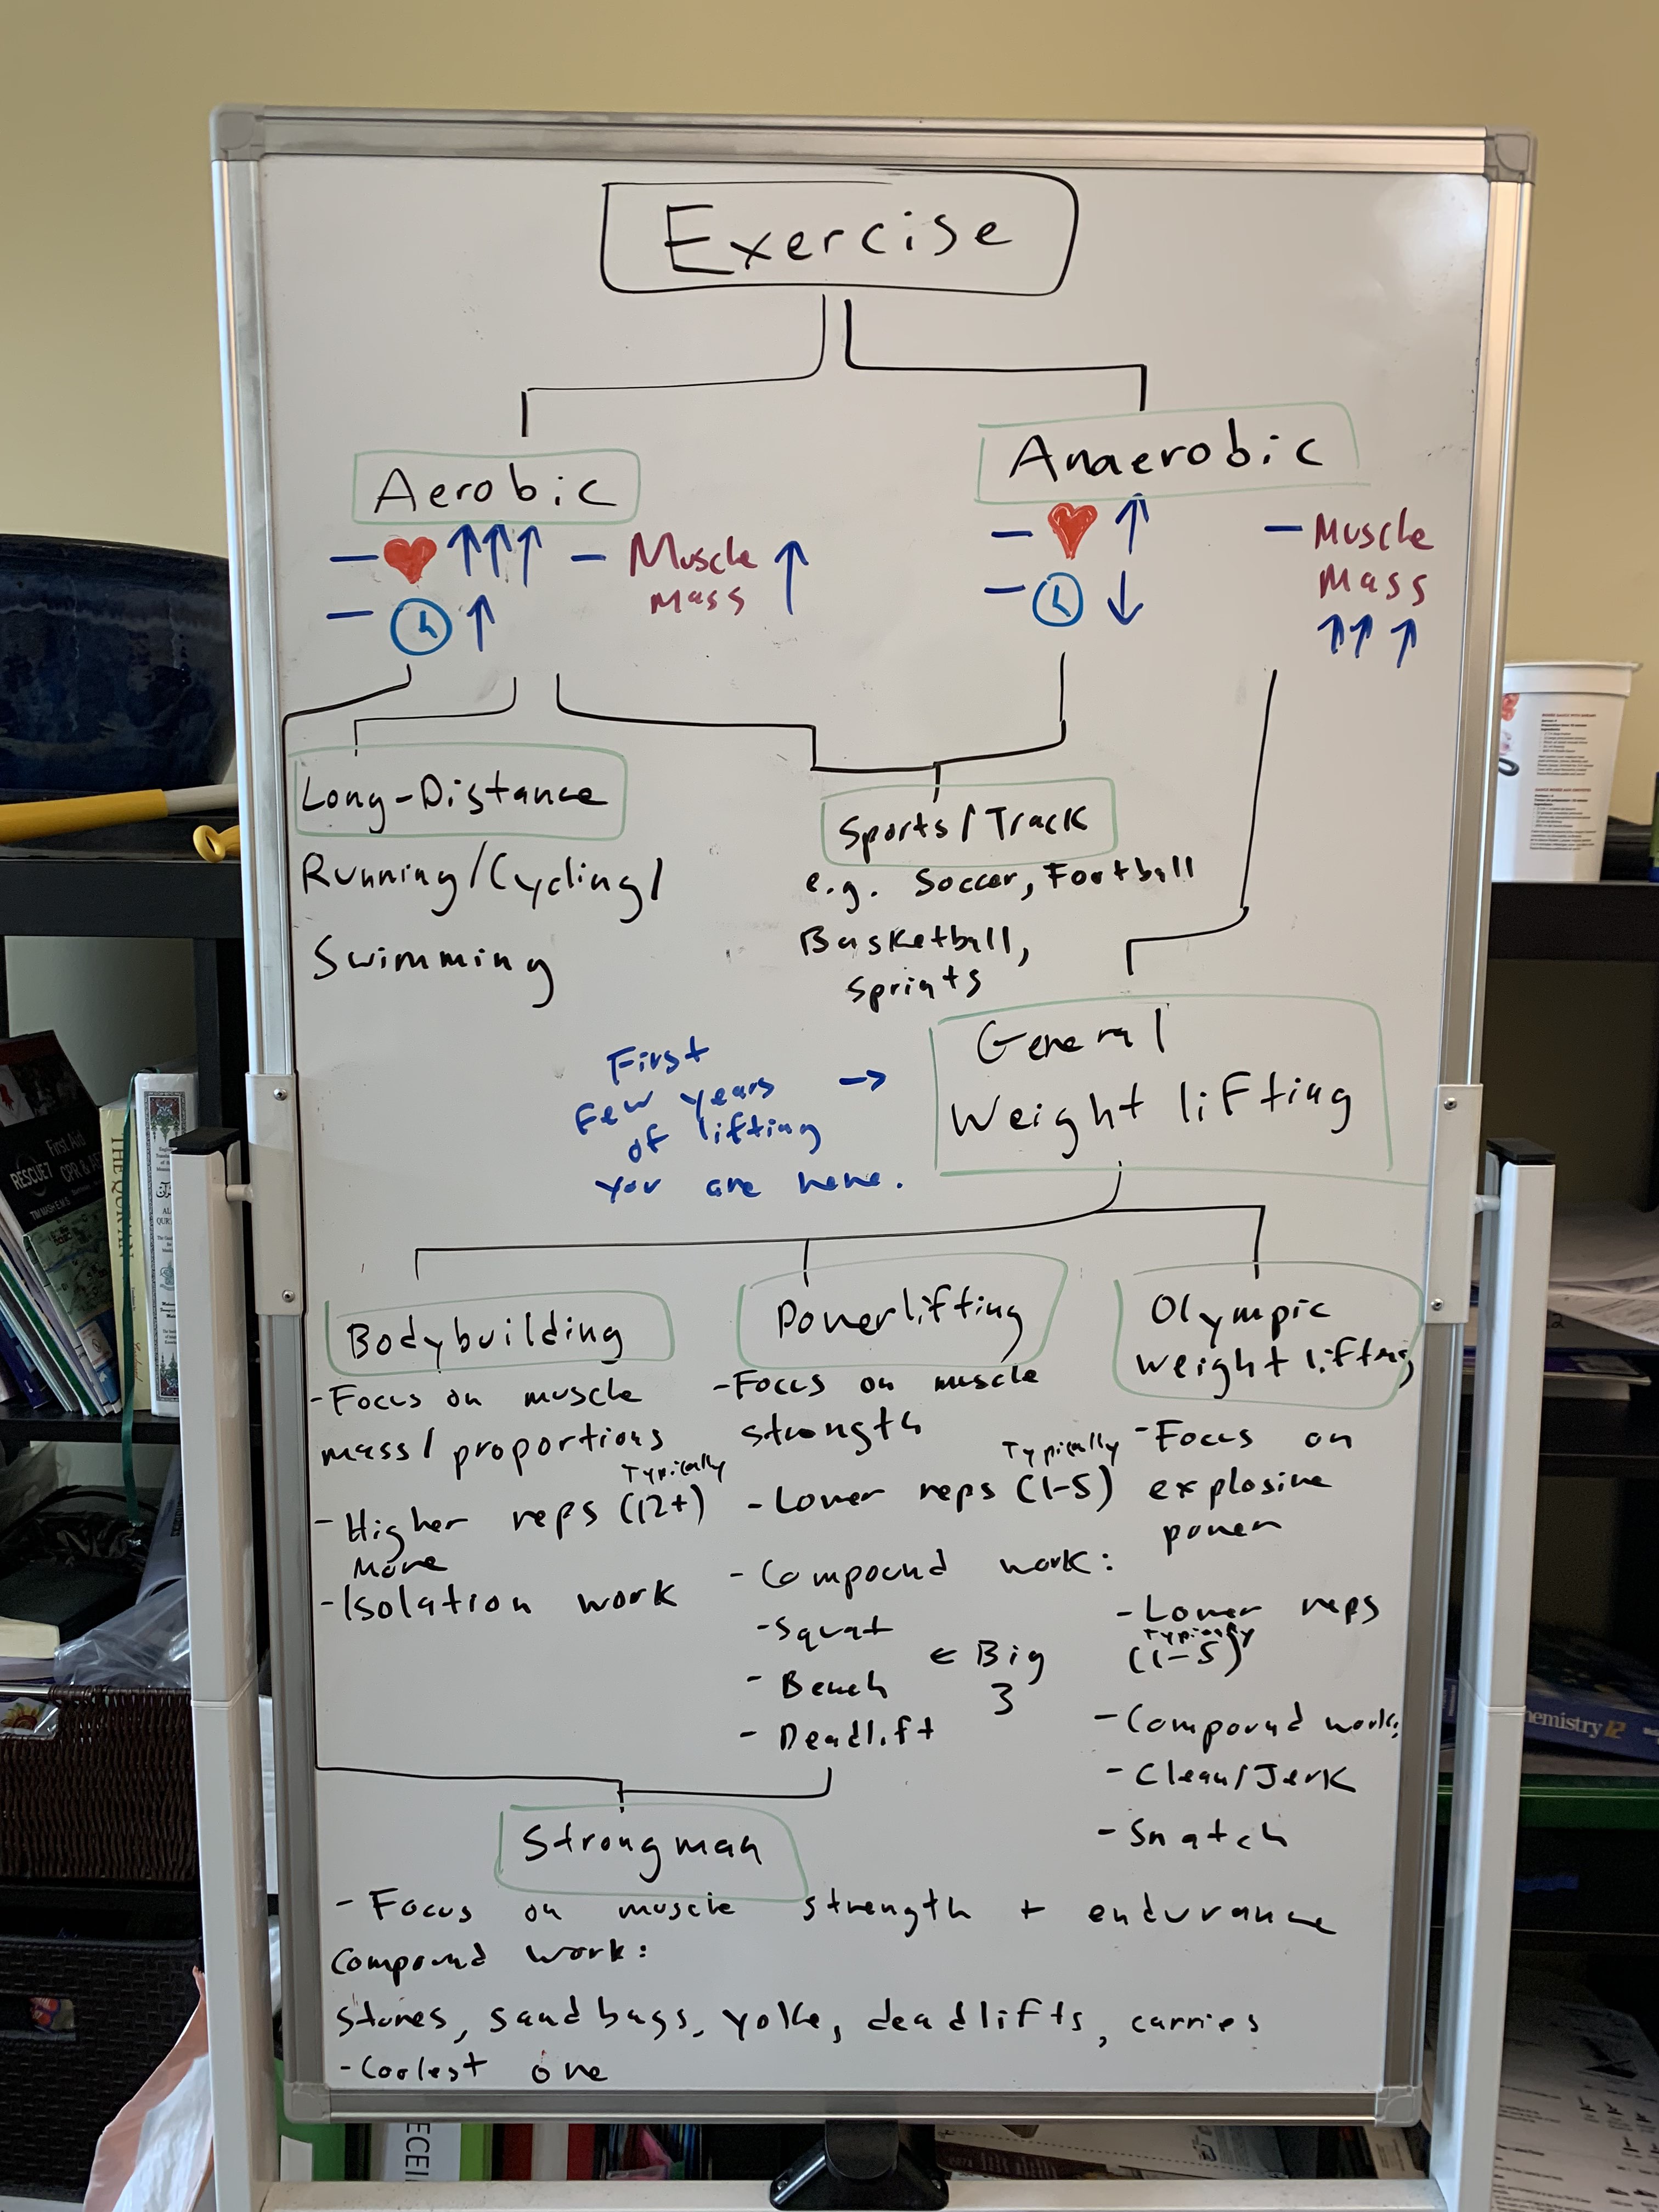 Exercise
Aerobic
↑↑↑
- Muscle
Mass ↑
- ↑
Anaerobic
- ↑
- ↓
- Muscle
Mass
↑↑↑
Long-Distance
Running/Cycling/
Swimming
Sports/Track
e.g. Soccer, Football
Basketball,
Sprints
First
Few years
of lifting
you are here.
→
General
Weight lifting
Bodybuilding
- Focus on muscle
mass/proportions
Typically
- Higher reps (12+)
More
- Isolation work
Powerlifting
- Focus on muscle
strength
Typically
- Lower reps (1-5)
- Compound work:
- Squat
- Bench
- Deadlift
← Big
3
Olympic
Weight lifting
- Focus on
explosive
power
- Lower reps
Typically
(1-5)
- Compound work:
- Clean/Jerk
- Snatch
Strongman
- Focus on muscle strength + endurance
Compound work:
Stones, sandbags, yoke, deadlifts, carries
- Coolest one
First Aid
RESCUE7 CPR & AE
THE QUR'AN
hemistry 12
ECEI